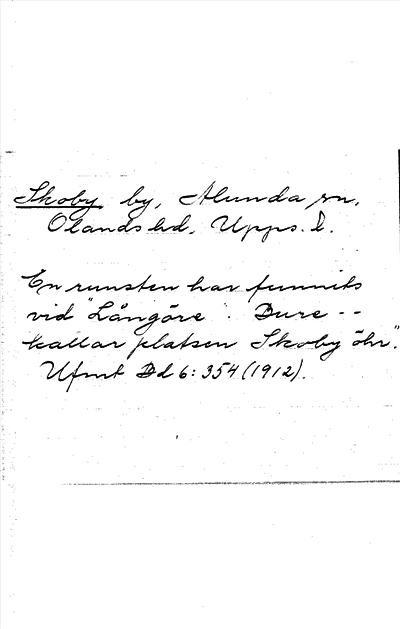 Skoby by, Alunda sn,
Olands hd, Upps. l.
En runsten har funnits
vid "Långöre". Bure - -
kallar platsen Skoby öhr".
Ufmt Bd 6: 354 (1912).